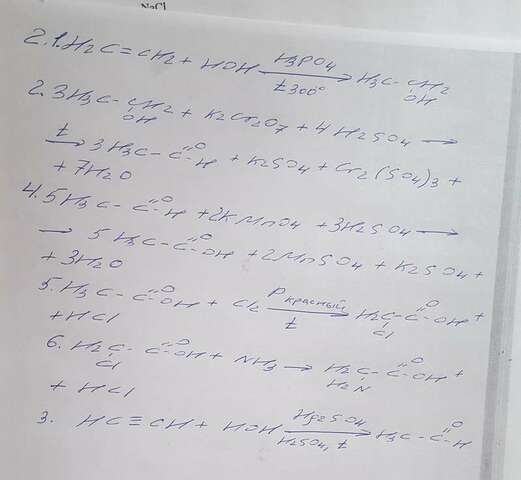 NaCl
2.1. H2C=CH2 + HOH H3PO4 t 300° → H3C-CH2 OH
2. 3H3C-CH2 OH + K2Cr2O7 + 4H2SO4 →
t → 3H3C-C=O H + K2SO4 + Cr2(SO4)3 +
+ 7H2O
4. 5H3C-C=O H + 2KMnO4 + 3H2SO4 →
→ 5H3C-C=O OH + 2MnSO4 + K2SO4 +
+ 3H2O
5. H3C-C=O OH + Cl2 P красный t → H2C Cl -C=O OH +
+ HCl
6. H2C Cl -C=O OH + NH3 → H2C H2N -C=O OH +
+ HCl
3. HC≡CH + HOH HgSO4 H2SO4, t → H3C-C=O H